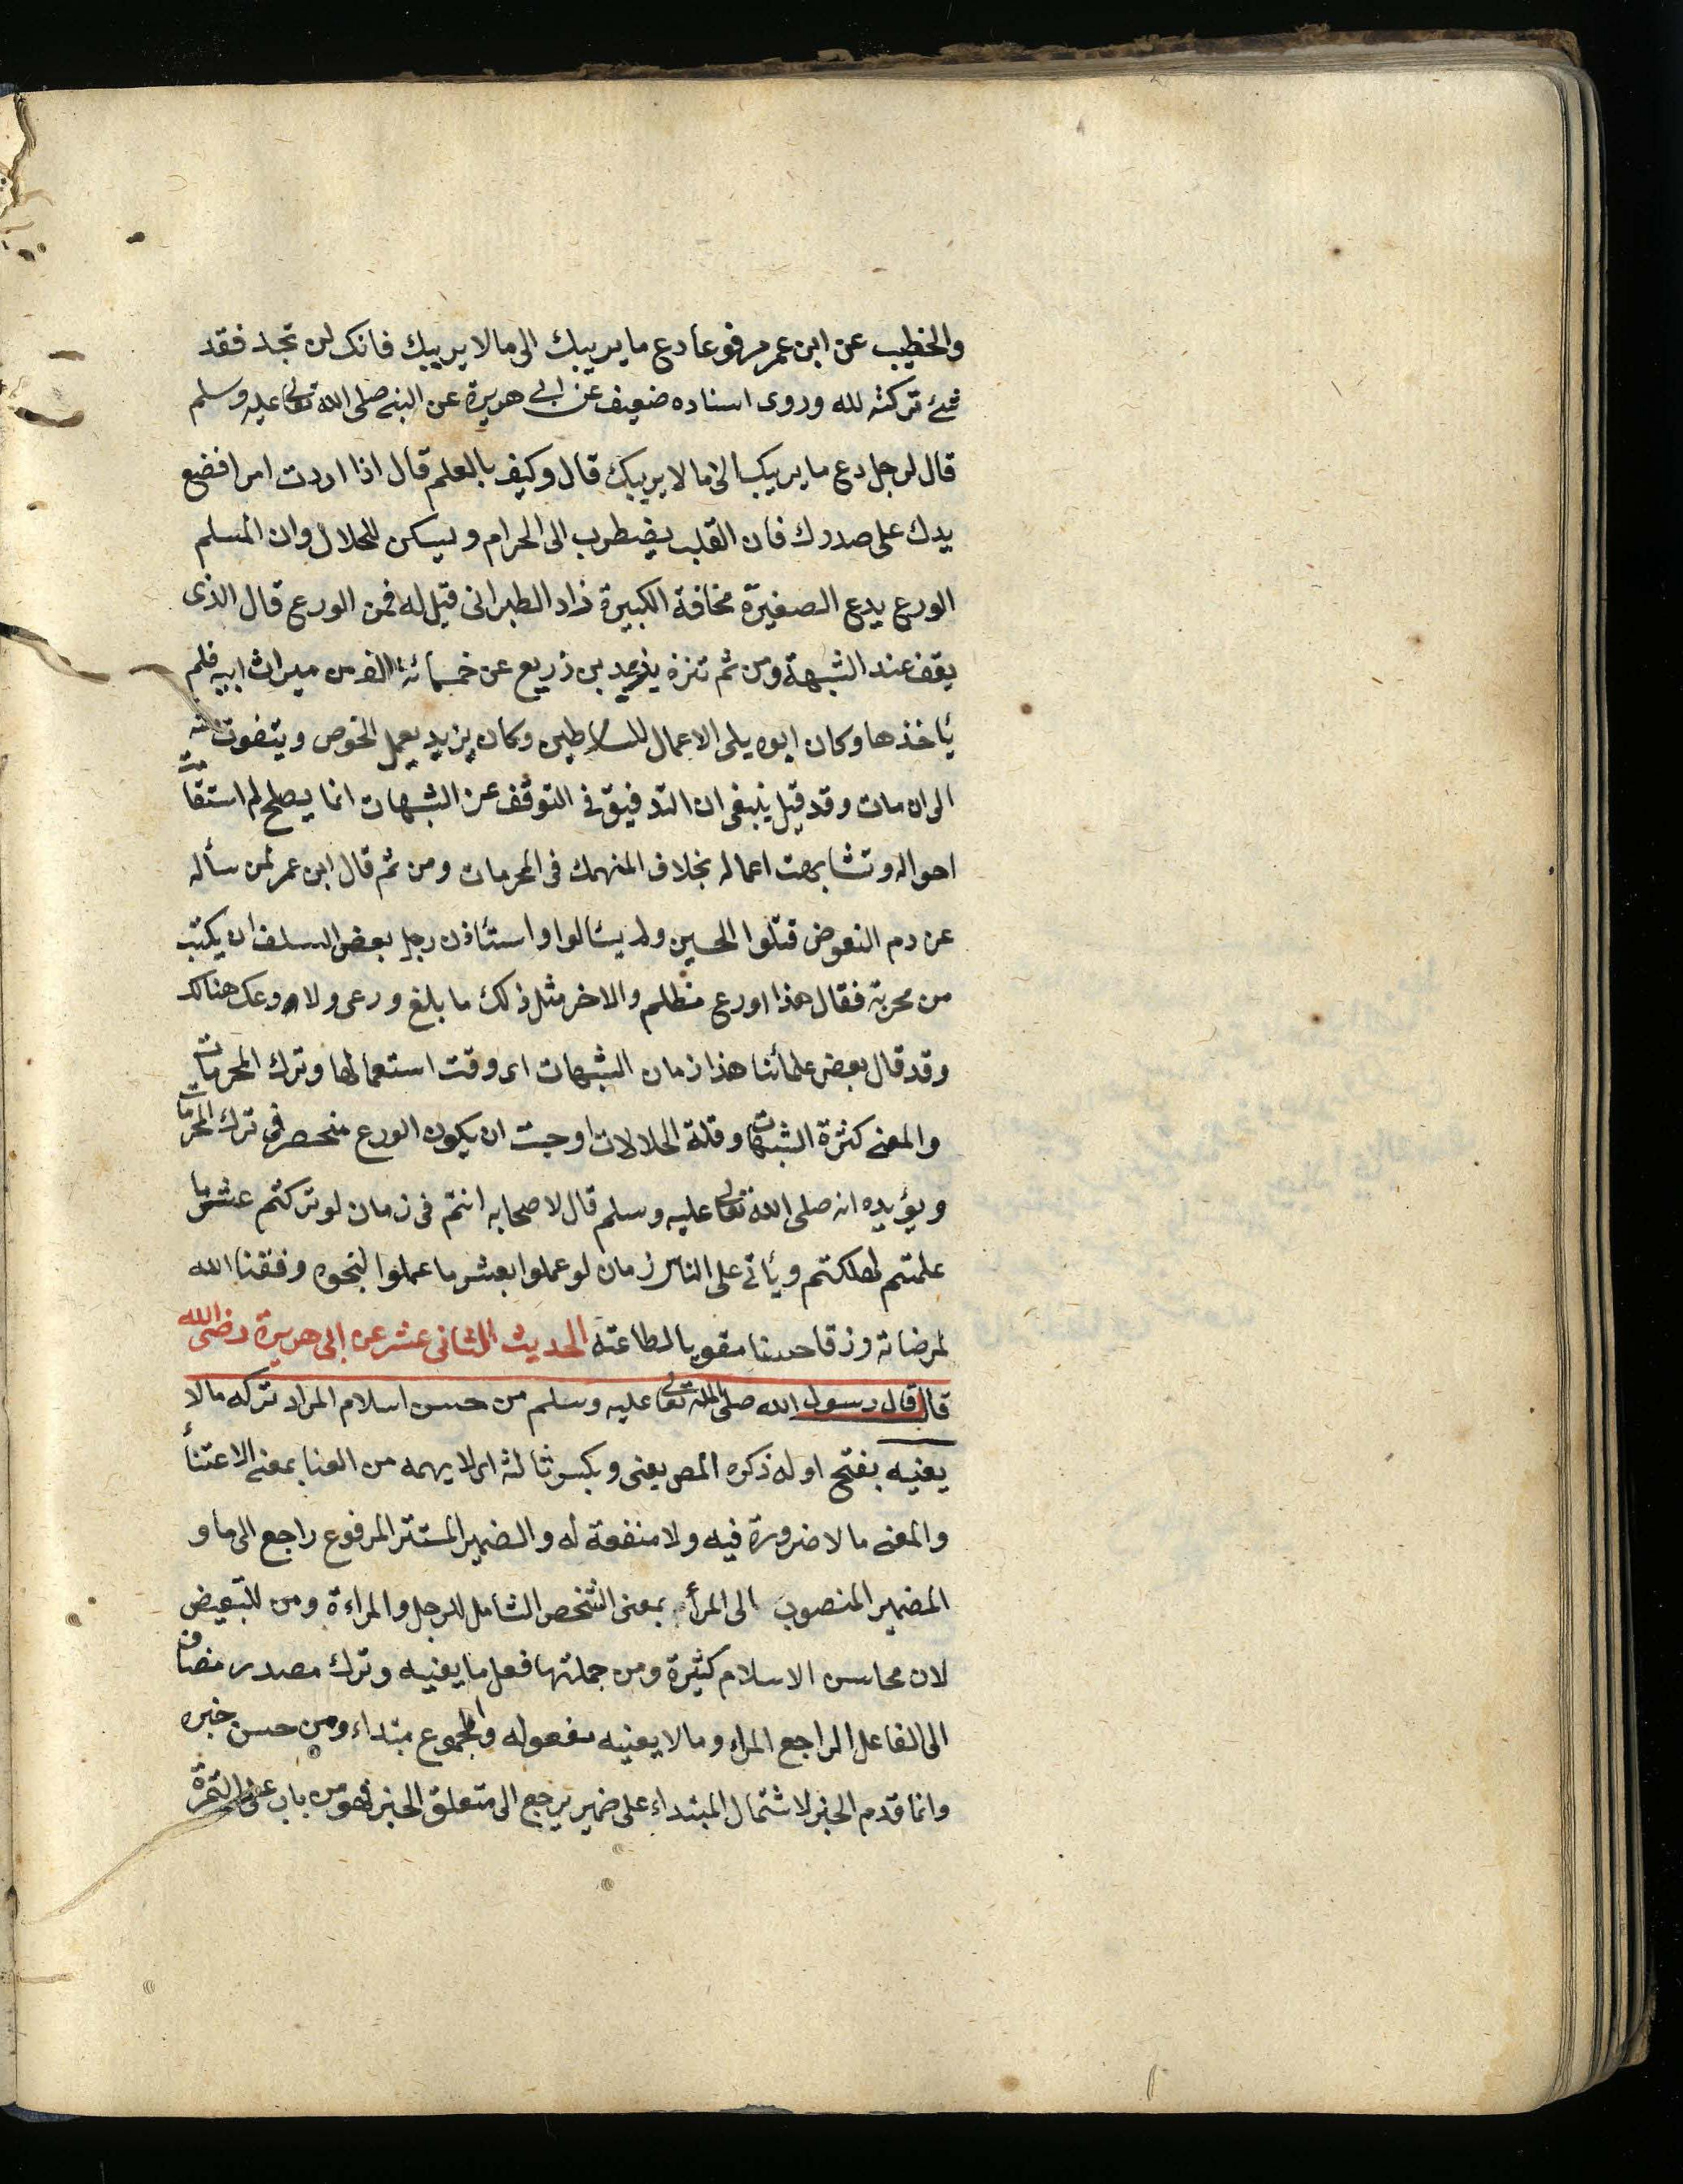 والخطيب عن ابن عمر مرفوعا دع ما يريبك الى ما لا يريبك فانك لن تجد فقد
شئ تركته لله وروى اسناده ضعيف عن ابى هريرة عن النبى صلى الله تعالى عليه وسلم
قال لرجل دع ما يريبك الى ما لا يريبك قال وكيف بالعلم قال اذا اردت امرا فضع
يدك على صدرك فان القلب يضطرب الى الحرام ويسكن للحلال وان المسلم
الورع يدع الصغيرة مخافة الكبيرة زاد الطبرانى قيل له فمن الورع قال الذى
يقف عند الشبهة ومن ثم تنزه يزيد بن زريع عن خمسمائة الف من ميراث ابيه فلم
يأخذها وكان ابوه يلى الاعمال للسلاطين وكان يزيد يعمل الخوص ويتقوت منه
الى ان مات وقد قيل ينبغى ان التدقيق فى التوقف عن الشبهات انما يصلح لم استقامت
احواله وتشابهت اعماله بخلاف المنهمك فى المحرمات ومن ثم قال ابن عمر لمن سأله
عن دم البعوض قتلوا الحسين ولم يسئالوا واستئاذن رجل بعض السلف ان يكتب
من محربة فقال هذا اورع مظلم والاخر مثل ذلك ما بلغ ورعى ولا ورعك هنالك
وقد قال بعض علمائنا هذا زمان الشبهات اى وقت استعمالها وترك المحرمات
والمعنى كثرة الشبهات وقلة الحلالات اوجبت ان يكون الورع منحصر فى ترك المحرمات
ويؤيده انه صلى الله تعالى عليه وسلم قال لاصحابه انتم فى زمان لو تركتم عشر ما
علمتم لهلكتم ويأتى على الناس زمان لو عملوا بعشر ما عملوا لنجوه وفقنا الله
لمرضاته ورزقا حسنا مقويا لطاعته الحديث الثانى عشر عن ابى هريرة رضى الله
قال قال رسول الله صلى الله تعالى عليه وسلم من حسن اسلام المراد تركه ما لا
يعنيه بفتح اوله ذكره المص يعنى وبكسر ثالثه اى لا يهمه من العنا بمعنى الاعتنأ
والمعنى ما لا ضرورة فيه ولا منفعة له والضمير المستتر المرفوع راجع الى ما و
المضمير المنصوب الى المرأ بمعنى الشخص الشامل للرجل والمراءة ومن للتبعيض
لان محاسن الاسلام كثيرة ومن جملتها فعل ما يعنيه وترك مصدر مضاف
الى الفاعل الراجع المراء وما لا يعنيه مفعوله والمجموع مبتداء ومن حسن خبره
وانما قدم الخبر لاشتمال المبتداء على ضمير يرجع الى متعلق الخبر فهو من باب على التمرة